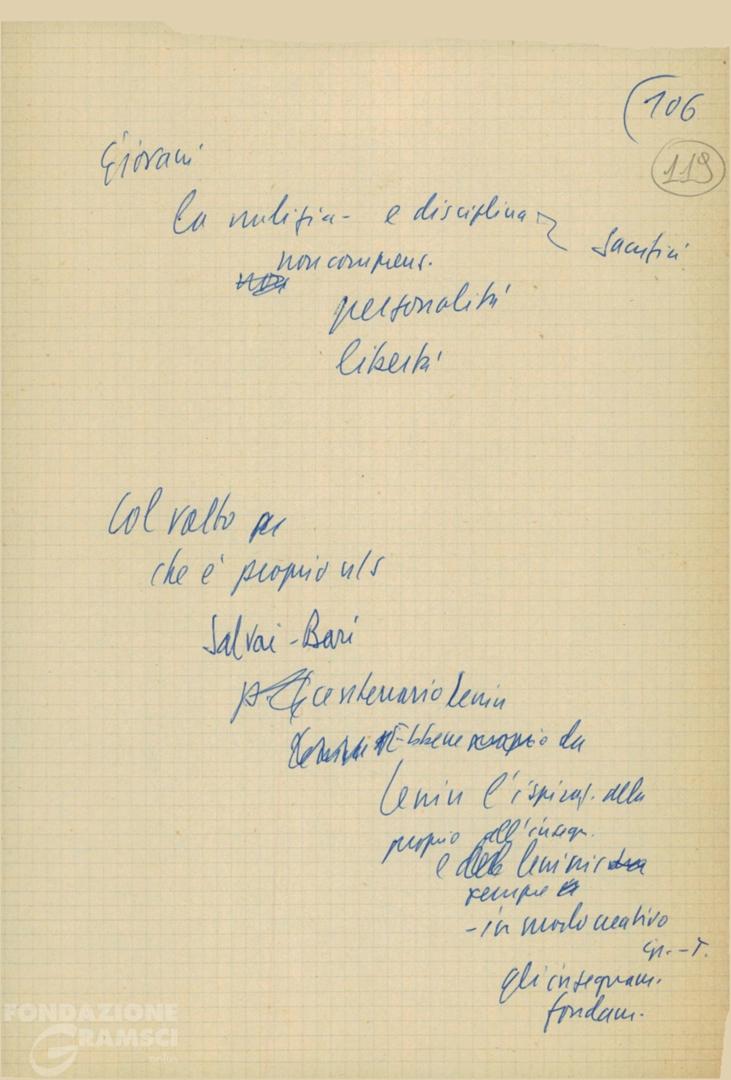 (106
119
Giovani
La milizia - e disciplina
Sacrifici
non compens.
personalità
libertà
Col volto per
che è proprio
Salvai - Bari
centenario Lenin
Ebbene proprio da
Lenin l'ispiraz. della
proprio all'insegn.
e
sempre
- in modo creativo
gli insegnam.
fondam.
FONDAZIONE
GRAMSCI
onlus